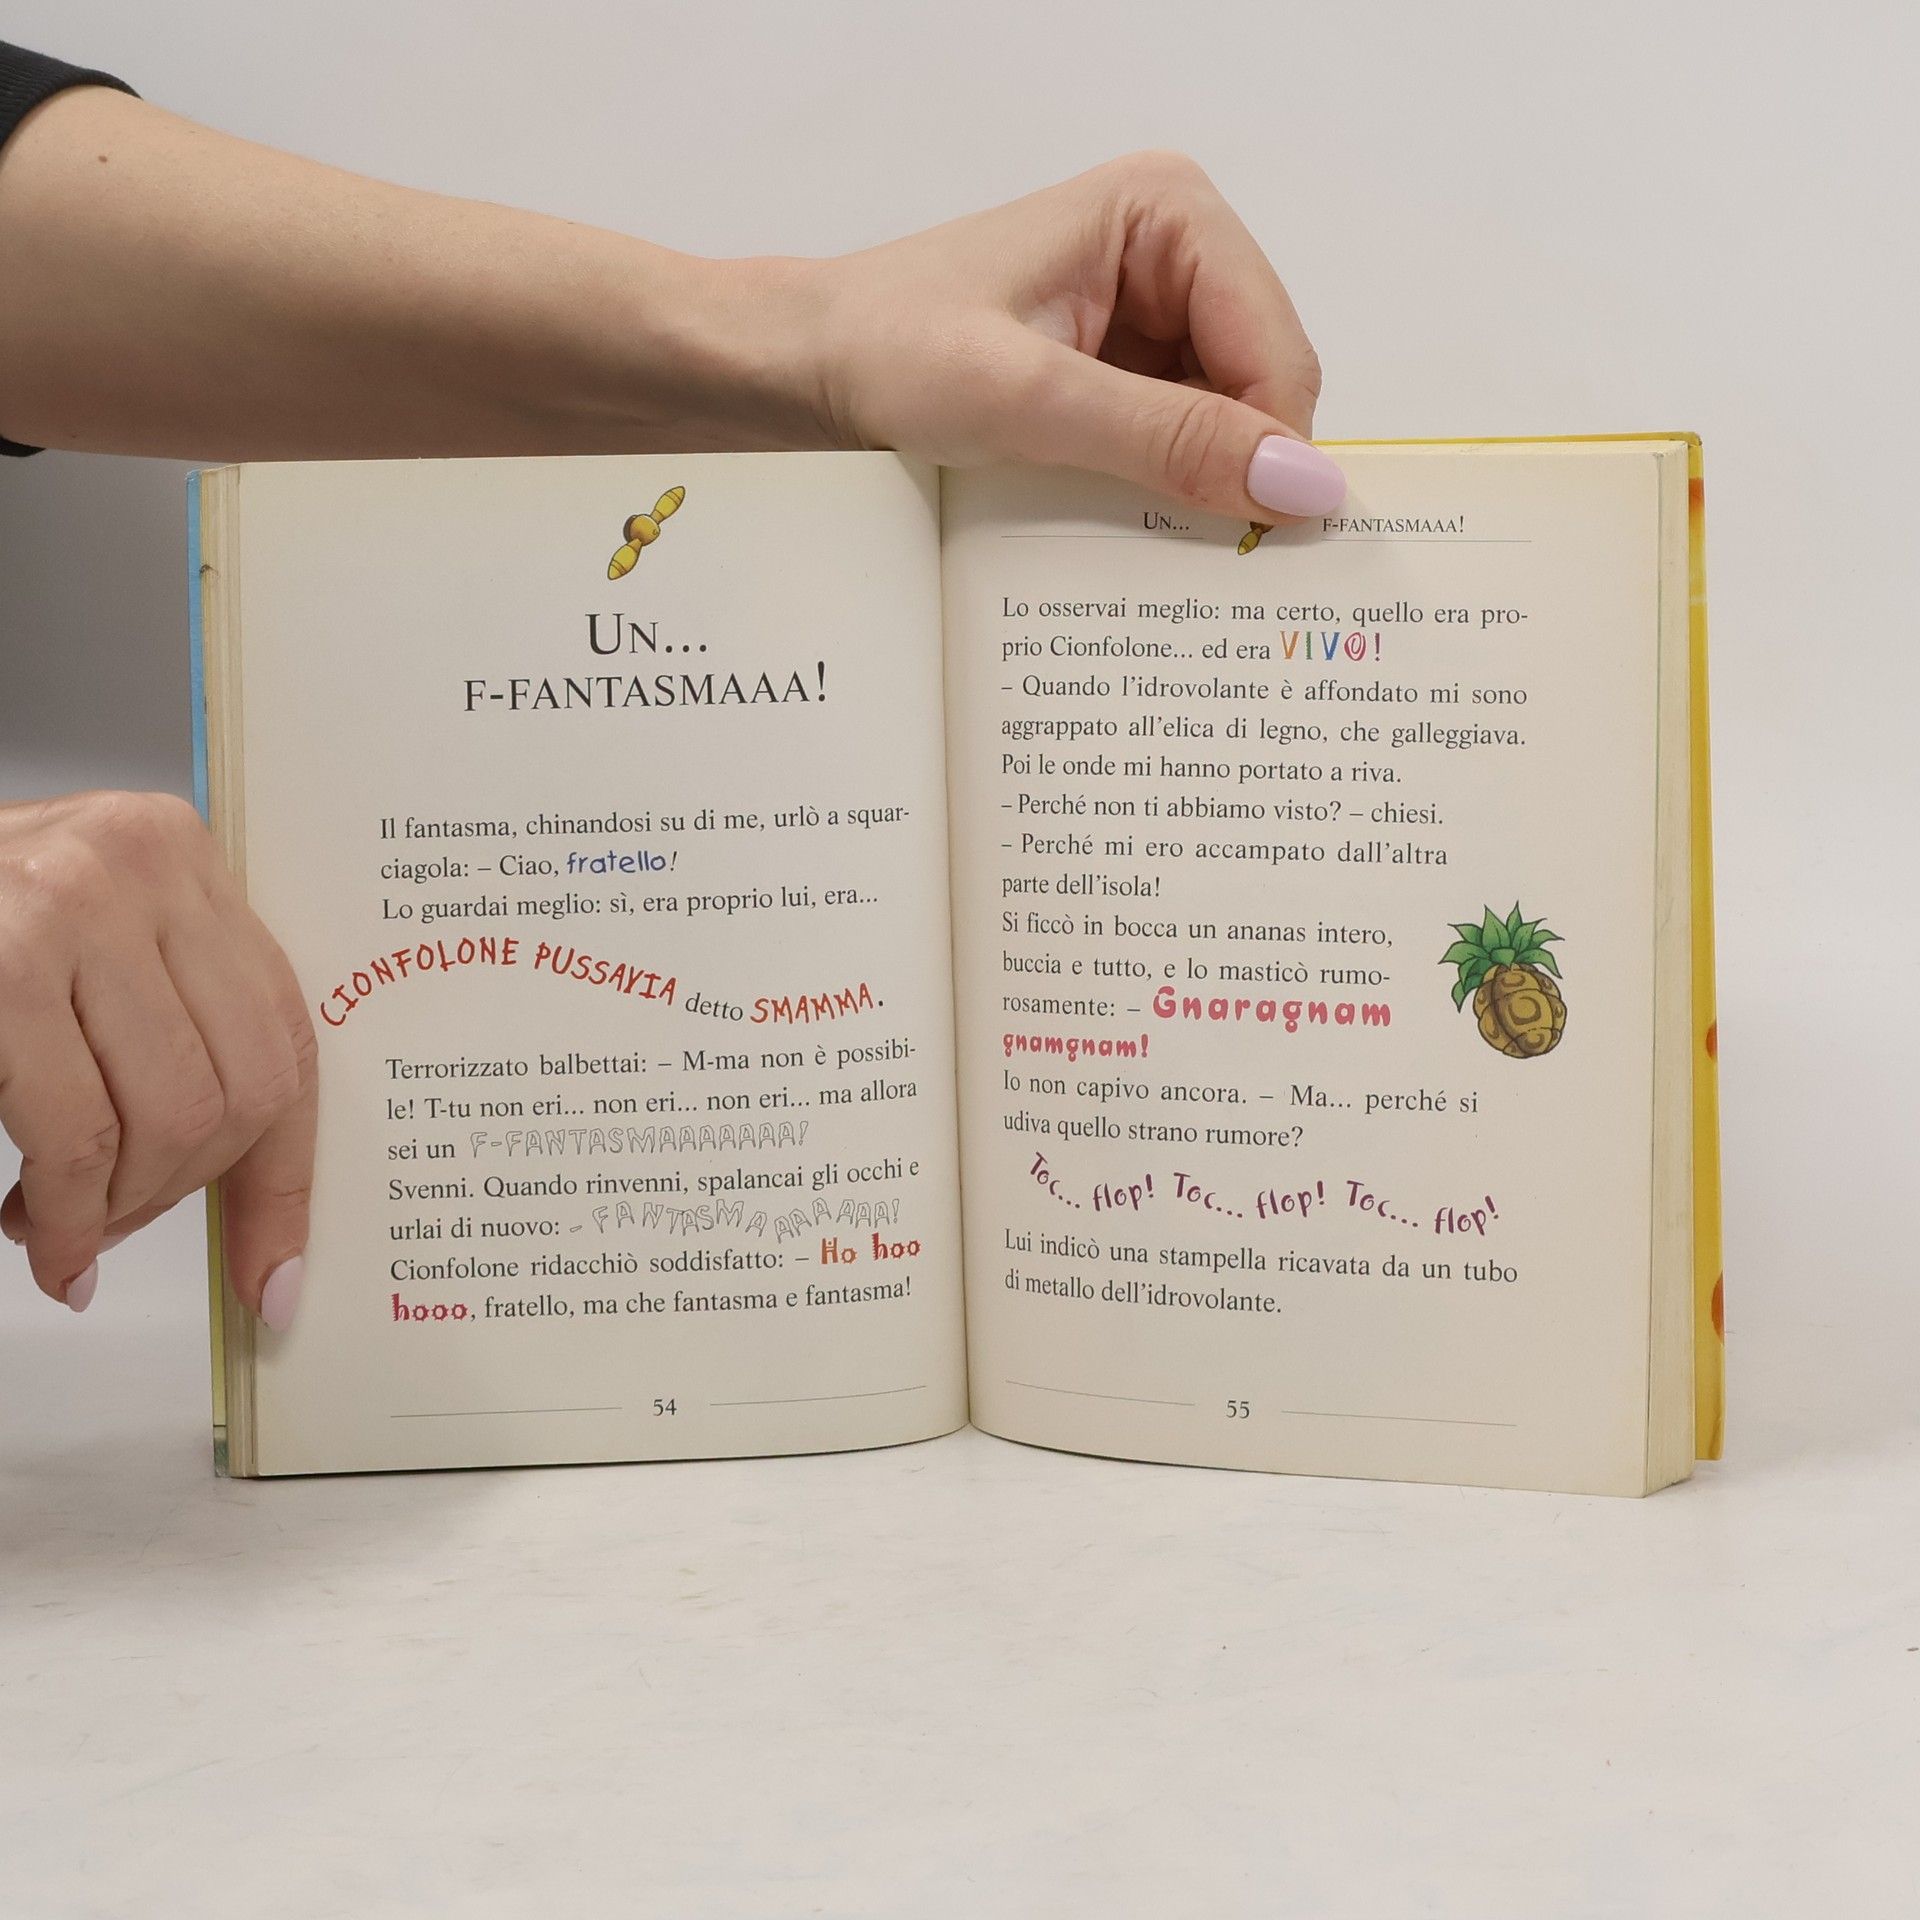 UN...
F-FANTASMAAA!
Il fantasma, chinandosi su di me, urlò a squar-
ciagola: – Ciao, fratello!
Lo guardai meglio: sì, era proprio lui, era...
CIONFOLONE PUSSAVIA detto SMAMMA.
Terrorizzato balbettai: – M-ma non è possibi-
le! T-tu non eri... non eri... non eri... ma allora
sei un F-FANTASMAAAAAAA!
Svenni. Quando rinvenni, spalancai gli occhi e
urlai di nuovo: – FANTASMAAAAAAA!
Cionfolone ridacchiò soddisfatto: – Ho hoo
hooo, fratello, ma che fantasma e fantasma!
54
UN... F-FANTASMAAA!
Lo osservai meglio: ma certo, quello era pro-
prio Cionfolone... ed era VIVO!
– Quando l'idrovolante è affondato mi sono
aggrappato all'elica di legno, che galleggiava.
Poi le onde mi hanno portato a riva.
– Perché non ti abbiamo visto? – chiesi.
– Perché mi ero accampato dall'altra
parte dell'isola!
Si ficcò in bocca un ananas intero,
buccia e tutto, e lo masticò rumo-
rosamente: – Gnaragnam
gnamgnam!
Io non capivo ancora. – Ma... perché si
udiva quello strano rumore?
Toc... flop! Toc... flop! Toc... flop!
Lui indicò una stampella ricavata da un tubo
di metallo dell'idrovolante.
55